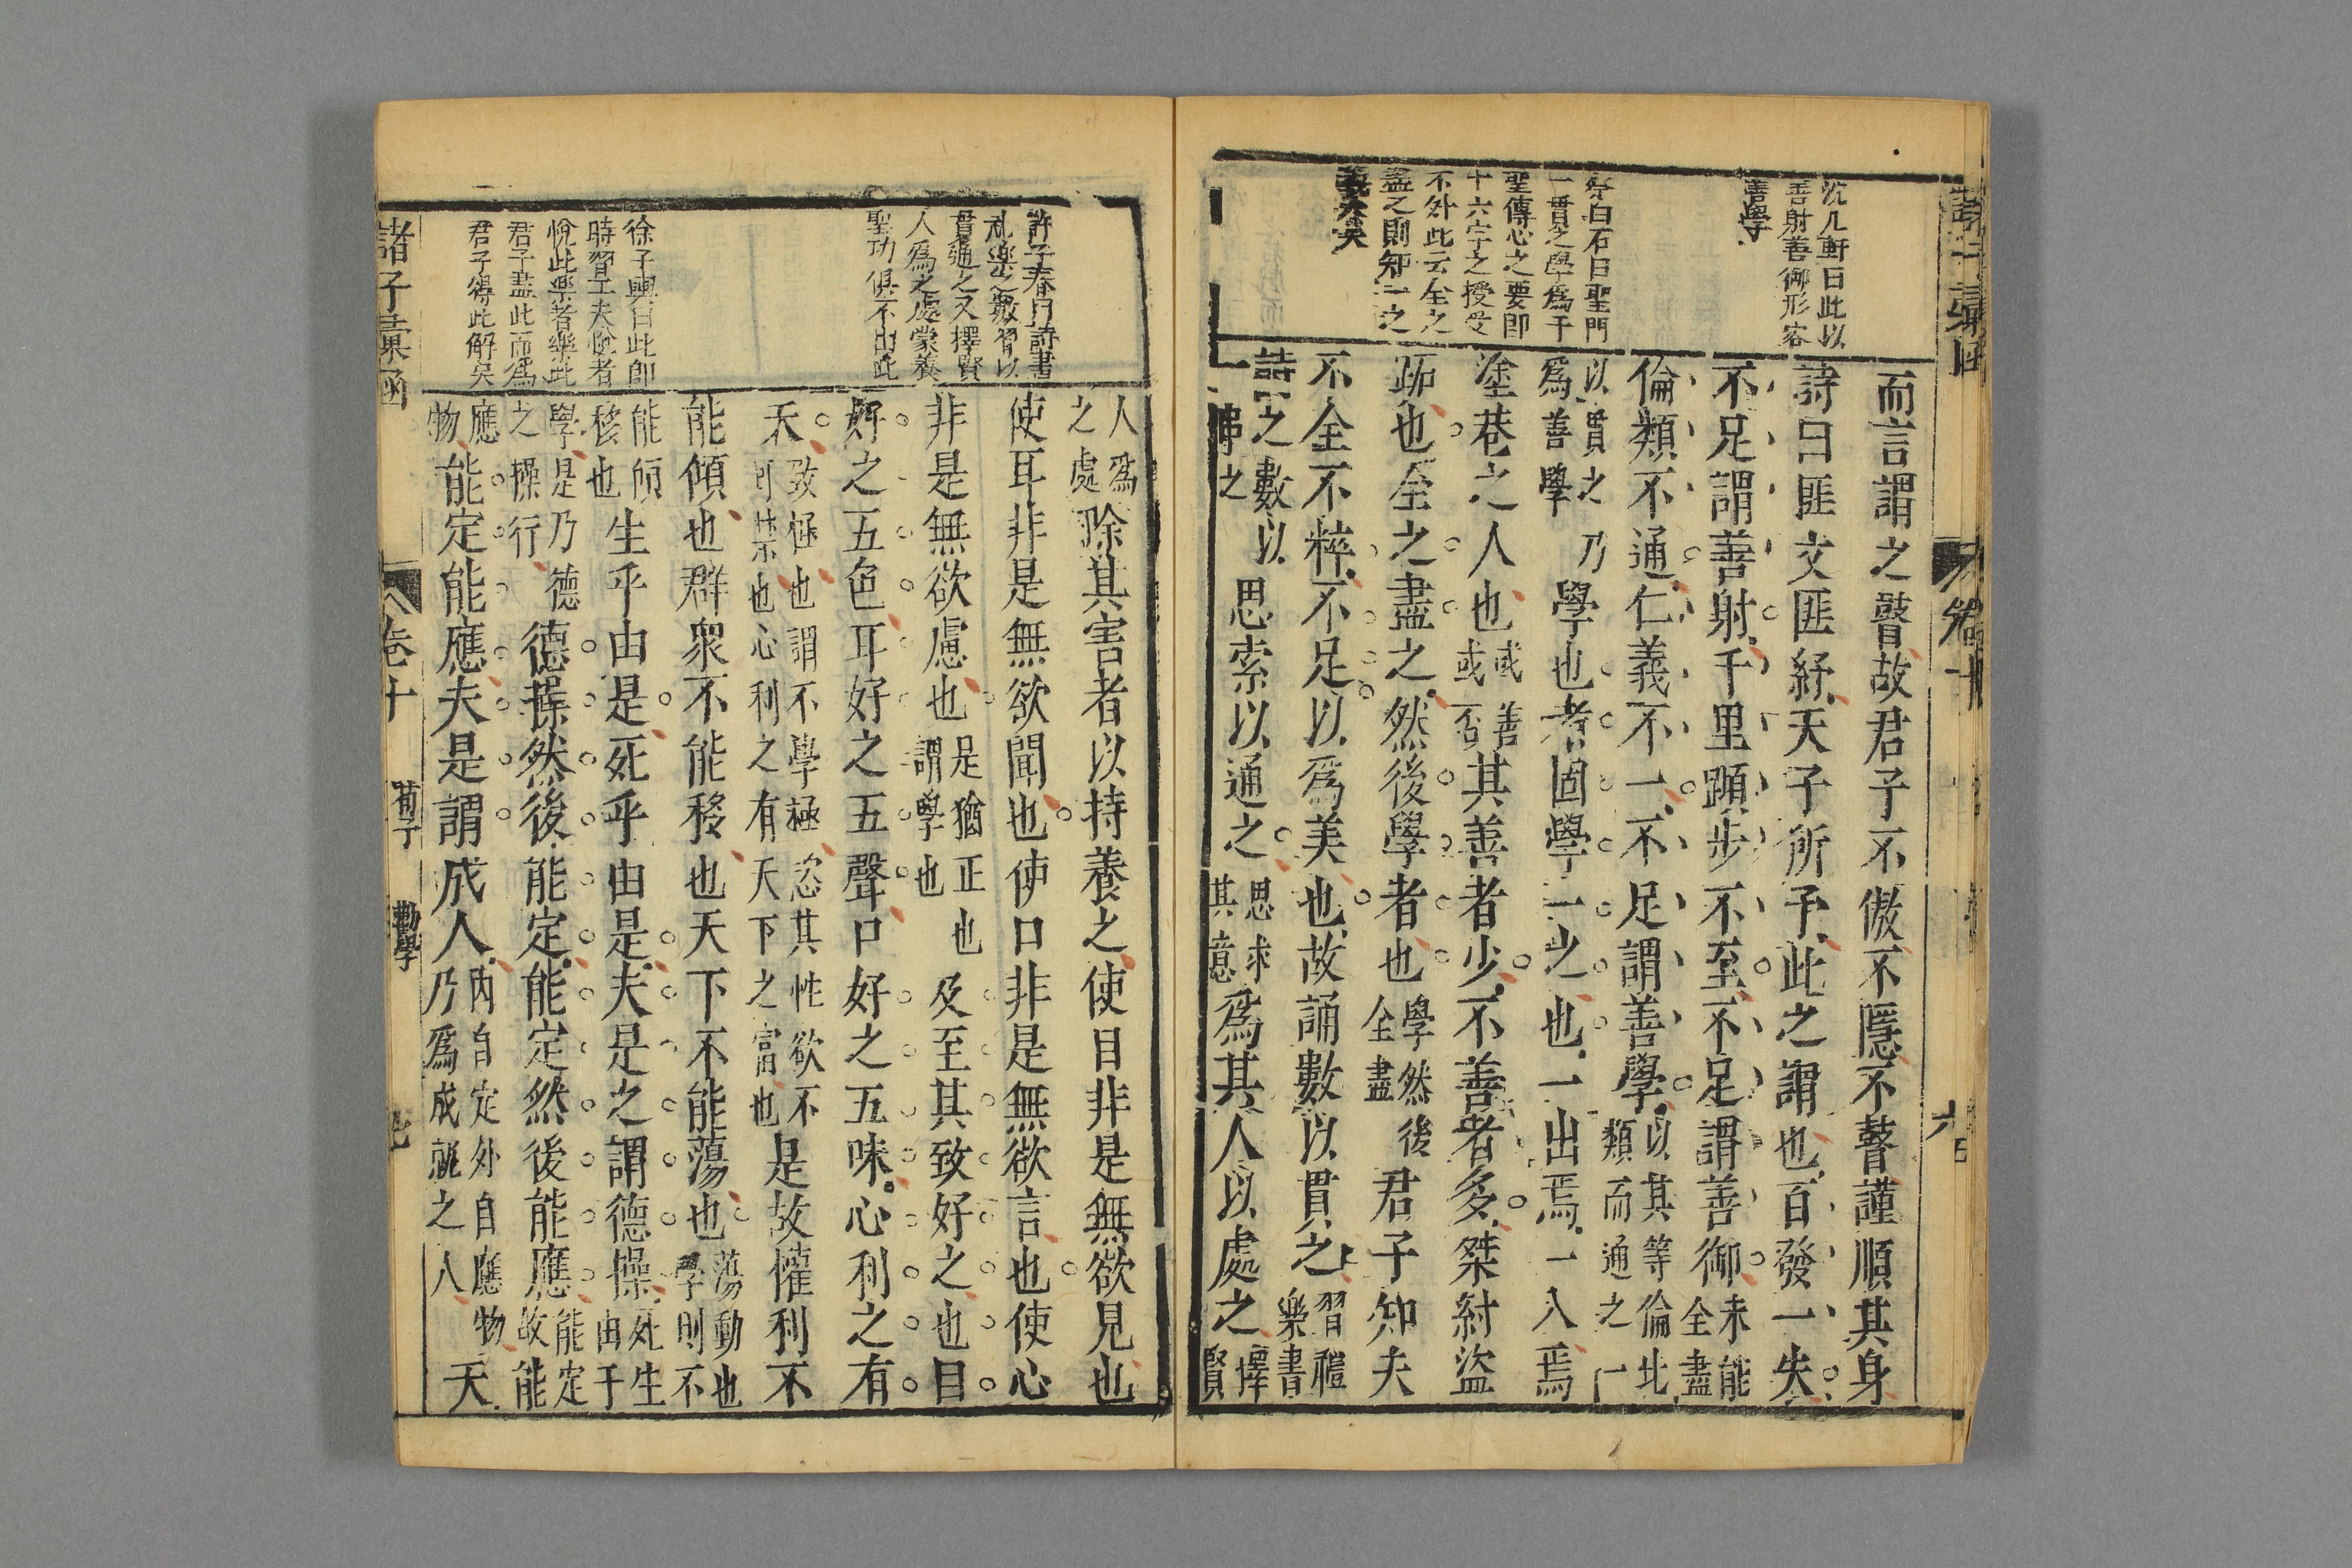 沈几軒曰此以
善射善御形容
善學
白石曰聖門
一貫之學爲千
聖傳心之要卽
十六字之授受
不外此云全之
盡之則知一之
義大矣
而言謂之瞽故君子不傲不隱不瞽謹順其身
詩曰匪交匪紓天子所予此之謂也百發一失
不足謂善射千里蹞步不至不足謂善御未能全盡
倫類不通仁義不一不足謂善學以其等倫比類而通之一
以貫之乃爲善學學也者固學一之也一出焉一入焉
塗巷之人也或善或否其善者少不善者多桀紂盜
跖也全之盡之然後學者也學然後全盡君子知夫
不全不粹不足以爲美也故誦數以貫之習禮樂書
詩之數以之思索以通之思求其意爲其人以處之擇賢
諸子彙函
卷十
許子春曰詩書
禮樂之數習以
貫通之又擇賢
人爲之處蒙養
聖功俱不出此
徐子與曰此卽
時習工夫悅者
悅此樂者樂此
君子盡此而爲
君子得此解矣
人爲之處除其害者以持養之使目非是無欲見也
使耳非是無欲聞也使口非是無欲言也使心
非是無欲慮也是猶正也謂學也及至其致好之也目
好之五色耳好之五聲口好之五味心利之有
天致極也謂不學極恣其性欲不可禁也心利之有天下之富也是故懽利不
能傾也群衆不能移也天下不能蕩也蕩動也學則不
能傾移也生乎由是死乎由是夫是之謂德操死生由于
學是乃德之操行德操然後能定能定然後能應能定故能
應物能定能應夫是謂成人內自定外自應物乃爲成就之人天
諸子彙函
卷十
荀子
勸學
七